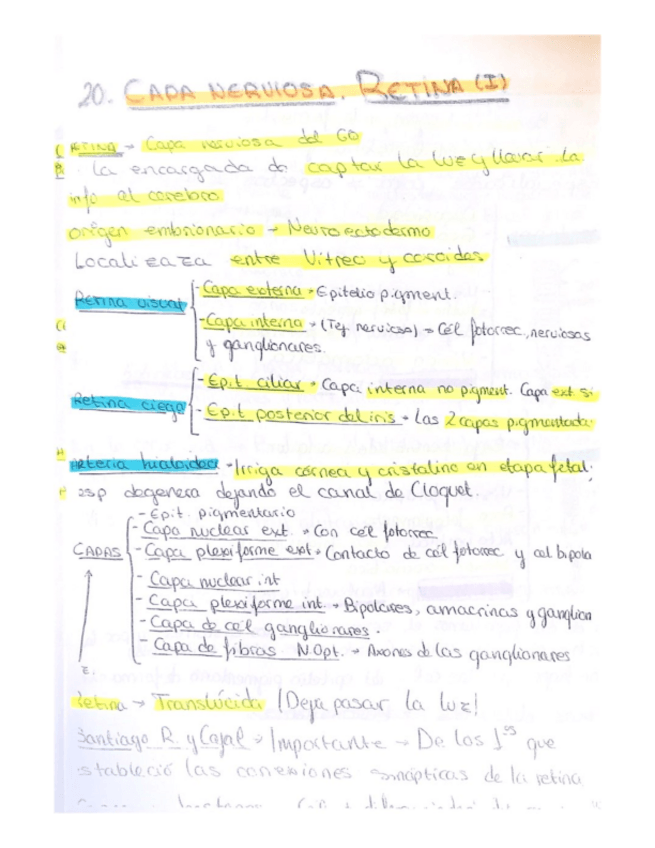 20. CAPA NERVIOSA. RETINA (I)
RETINA → Capa nerviosa del GO
la encargada de captar la luz y llevar la
info al cerebro
origen embrionario → Neuroectodermo
Localizaza entre Vítreo y coroides
Retina visual
- Capa externa → Epitelio pigment.
- Capa interna → (Tej. nervioso) → Cél fotorrec, nerviosas
y ganglionares.
Retina ciega
- Epit. ciliar → Capa interna no pigment. Capa ext sí
- Epit posterior del iris → Las 2 capas pigmentadas
Arteria hialoidea → Irriga córnea y cristalino en etapa fetal;
desp degenera dejando el canal de Cloquet.
CAPAS
- Epit. pigmentario
- Capa nuclear ext. → Con cél fotorrec
- Capa plexiforme ext → Contacto de cél fotorrec y cel bipola
- Capa nuclear int
- Capa plexiforme int. → Bipolares, amacrinas y ganglion
- Capa de cél ganglionares.
- Capa de fibras N.Opt. → Axones de las ganglionares
Retina → Translúcida ¡Deja pasar la luz!
Santiago R. y Cajal → Importante → De los 1os que
estableció las conexiones sinápticas de la retina